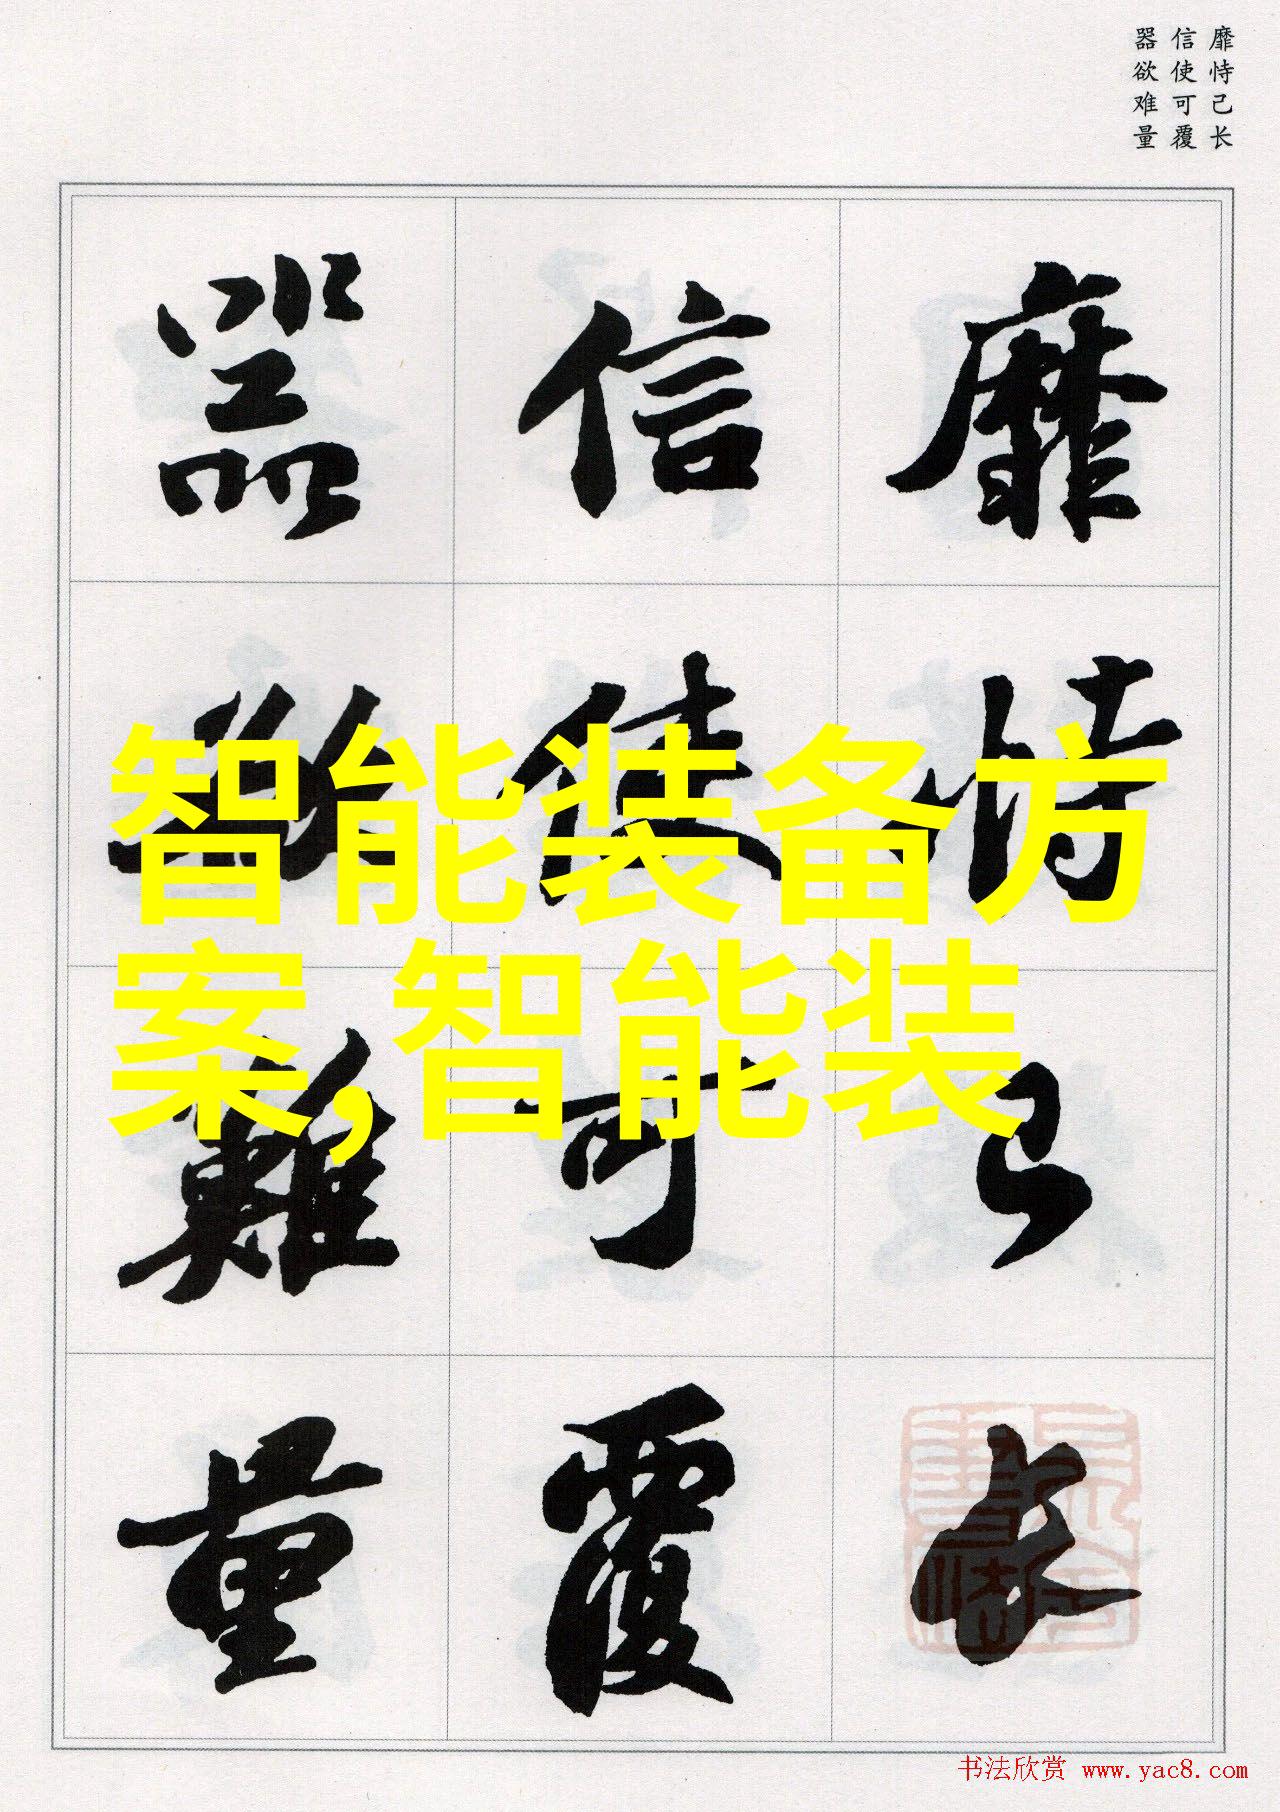 靡恃己长
信使可覆
器欲难量
靡恃己長
信使可覆
器欲難量
智能装备方
案,智能装
书法欣赏 www.yac8.com